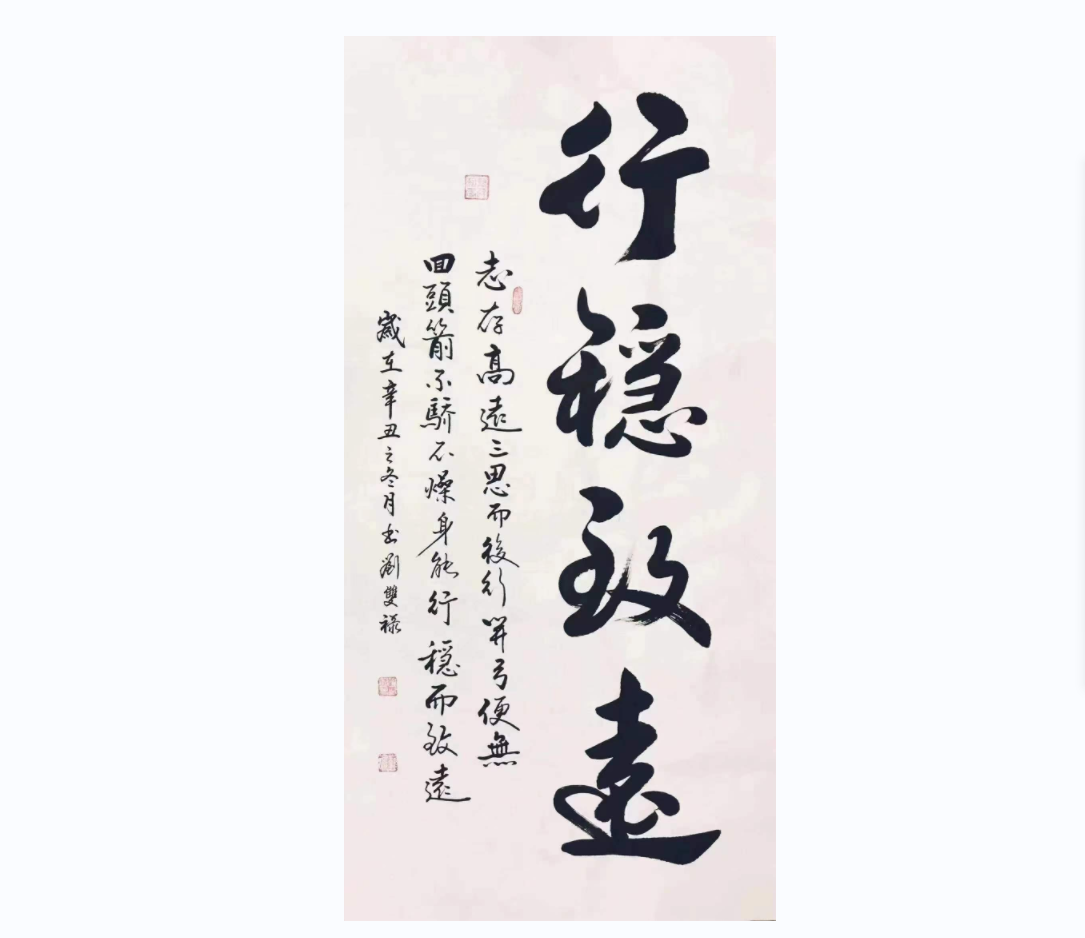 行穩致遠
志存高遠三思而後行開弓便無
回頭箭不驕不燥身能行穩而致遠
歲在辛丑之冬月书劉雙祿